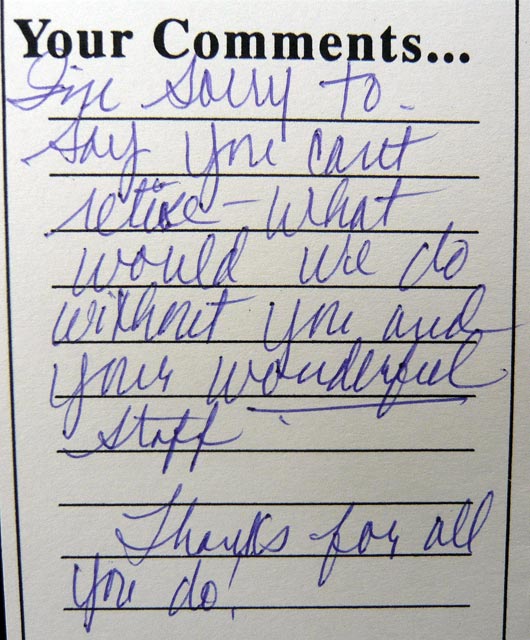 Your Comments...
I'm Sorry to
say you can't
retire - what
would we do
without you and
your wonderful
staff
Thanks for all
you do!